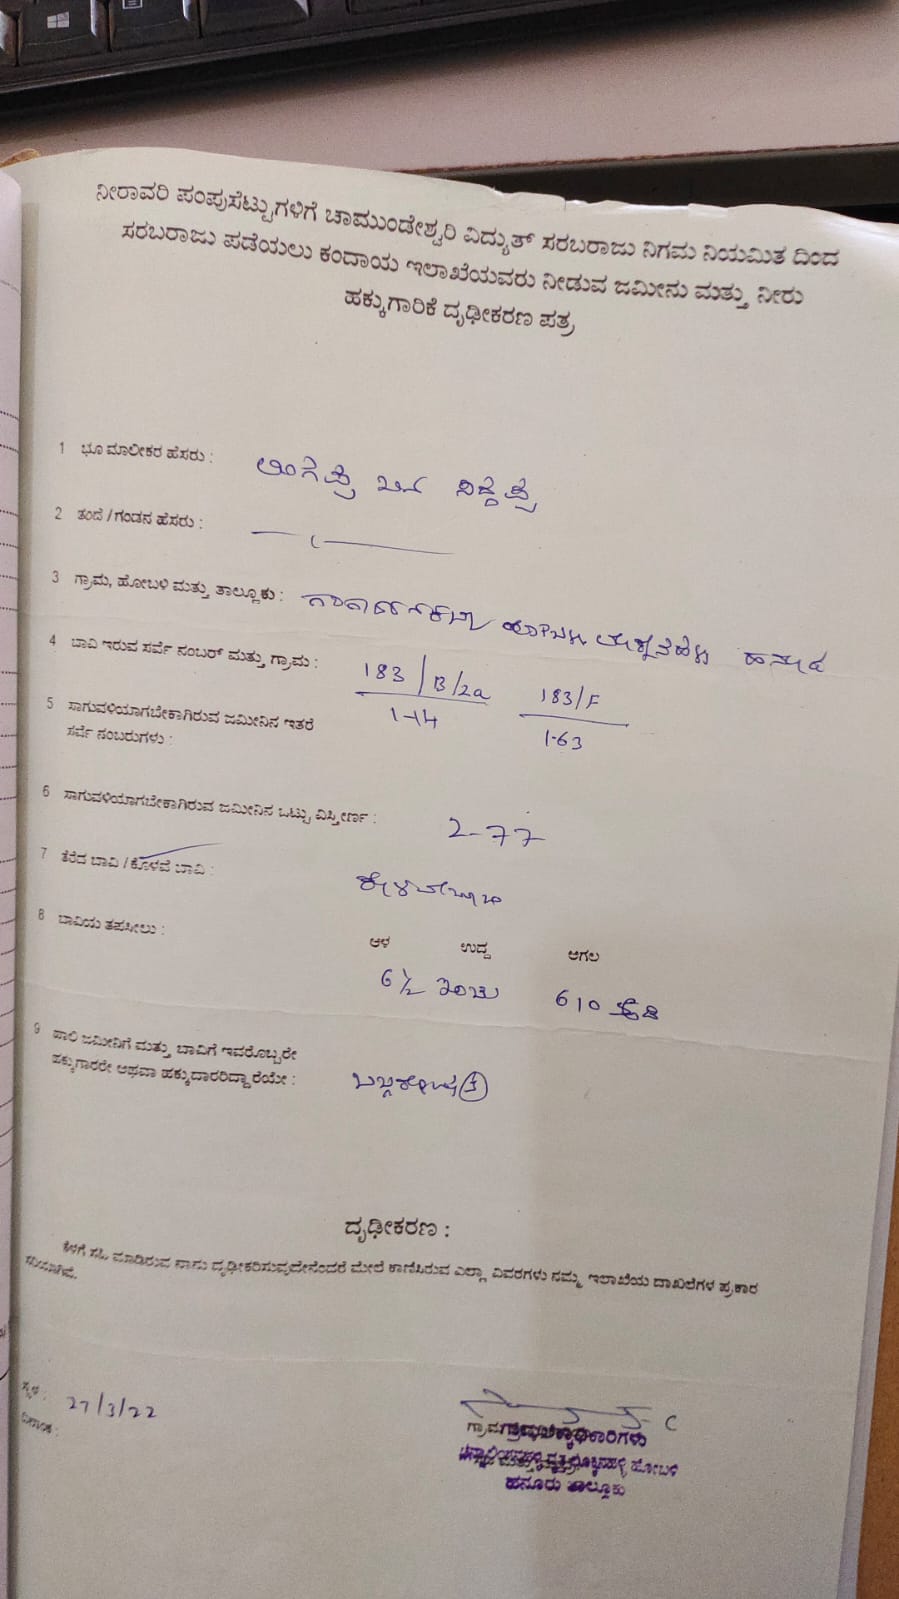 ನೀರಾವರಿ ಪಂಪುಸೆಟ್ಟುಗಳಿಗೆ ಚಾಮುಂಡೇಶ್ವರಿ ವಿದ್ಯುತ್ ಸರಬರಾಜು ನಿಗಮ ನಿಯಮಿತ ದಿಂದ
ಸರಬರಾಜು ಪಡೆಯಲು ಕಂದಾಯ ಇಲಾಖೆಯವರು ನೀಡುವ ಜಮೀನು ಮತ್ತು ನೀರು
ಹಕ್ಕುಗಾರಿಕೆ ದೃಢೀಕರಣ ಪತ್ರ
1 ಭೂ ಮಾಲೀಕರ ಹೆಸರು :
2 ತಂದೆ / ಗಂಡನ ಹೆಸರು :
3 ಗ್ರಾಮ, ಹೋಬಳಿ ಮತ್ತು ತಾಲ್ಲೂಕು :
4 ಬಾವಿ ಇರುವ ಸರ್ವೆ ನಂಬರ್ ಮತ್ತು ಗ್ರಾಮ : 183/B/2a 183/F
1-14 1-63
5 ಸಾಗುವಳಿಯಾಗಬೇಕಾಗಿರುವ ಜಮೀನಿನ ಇತರೆ
ಸರ್ವೆ ನಂಬರುಗಳು :
6 ಸಾಗುವಳಿಯಾಗಬೇಕಾಗಿರುವ ಜಮೀನಿನ ಒಟ್ಟು ವಿಸ್ತೀರ್ಣ : 2-77
7 ತೆರೆದ ಬಾವಿ / ಕೊಳವೆ ಬಾವಿ :
8 ಬಾವಿಯ ತಪಸೀಲು : ಆಳ ಉದ್ದ ಅಗಲ
6½ ಇಂಚು 610 ಅಡಿ
9 ಹಾಲಿ ಜಮೀನಿಗೆ ಮತ್ತು ಬಾವಿಗೆ ಇವರೊಬ್ಬರೇ
ಹಕ್ಕುಗಾರರೇ ಅಥವಾ ಹಕ್ಕುದಾರರಿದ್ದಾರೆಯೇ :
ದೃಢೀಕರಣ :
ಕೆಳಗೆ ಸಹಿ ಮಾಡಿರುವ ನಾನು ದೃಢೀಕರಿಸುವುದೇನೆಂದರೆ ಮೇಲೆ ಕಾಣಿಸಿರುವ ಎಲ್ಲಾ ವಿವರಗಳು ನಮ್ಮ ಇಲಾಖೆಯ ದಾಖಲೆಗಳ ಪ್ರಕಾರ
ಸರಿಯಾಗಿವೆ.
ಸ್ಥಳ :
ದಿನಾಂಕ : 27/3/22
ಹೋಬಳಿ
ಹನೂರು ತಾಲ್ಲೂಕು